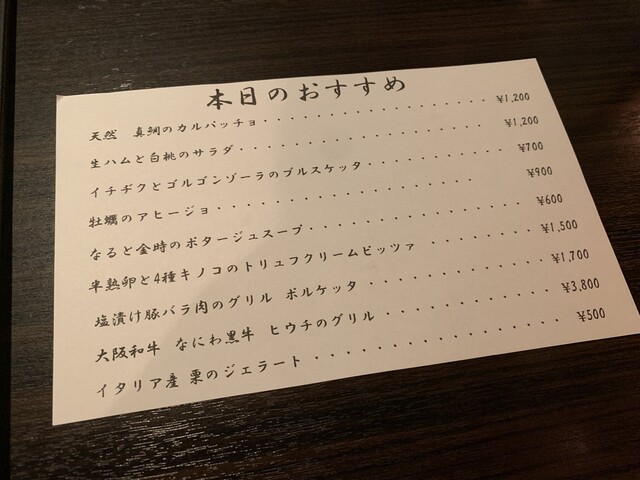 本日のおすすめ
天然 真鯛のカルパッチョ・・・・・・・・・・・・・・・・・・・・ ¥1,200
生ハムと白桃のサラダ・・・・・・・・・・・・・・・・・・・・・ ¥1,200
イチヂクとゴルゴンゾーラのブルスケッタ・・・・・・・・・・・ ¥700
牡蠣のアヒージョ・・・・・・・・・・・・・・・・・・・・ ¥900
なると金時のポタージュスープ・・・・・・・・・・・・・・・・ ¥600
半熟卵と4種キノコのトリュフクリームピッツァ ・・・・・・・・ ¥1,500
塩漬け豚バラ肉のグリル ポルケッタ ・・・・・・・・・・・・・ ¥1,700
大阪和牛 なにわ黒牛 ヒウチのグリル ・・・・・・・・・・・・・ ¥3,800
イタリア産 栗のジェラート ・・・・・・・・・・・・・・・・・・ ¥500